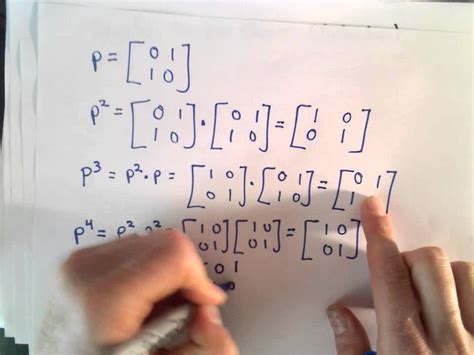 P = [0 1; 1 0]
P² = [0 1; 1 0] · [0 1; 1 0] = [1 0; 0 1]
P³ = P² · P = [1 0; 0 1] · [0 1; 1 0] = [0 1; 1
P⁴ = P² P² = [1 0; 0 1] [1 0; 0 1] = [1 0; 0 1]
0 1